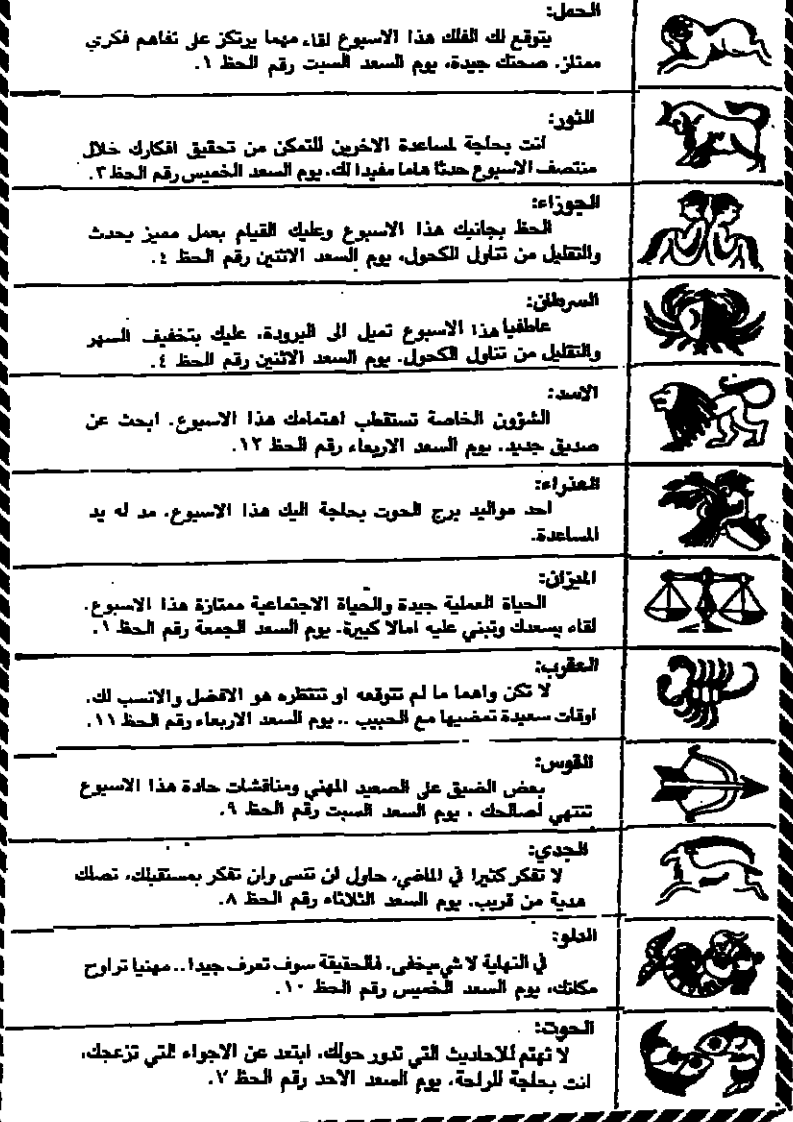 الحمل:
يتوقع لك الفلك هذا الاسبوع لقاء مهما يرتكز على تفاهم فكري
ممتاز. صحتك جيدة، يوم السعد السبت رقم الحظ ١.
الثور:
انت بحاجة لمساعدة الاخرين للتمكن من تحقيق افكارك خلال
منتصف الاسبوع حدثا هاما مفيدا لك. يوم السعد الخميس رقم الحظ ٣.
الجوزاء:
الحظ بجانبك هذا الاسبوع وعليك القيام بعمل مميز يحدث
والتقليل من تناول الكحول، يوم السعد الاثنين رقم الحظ ٤.
السرطان:
عاطفيا هذا الاسبوع تميل الى البرودة. عليك بتخفيف السهر
والتقليل من تناول الكحول. يوم السعد الاثنين رقم الحظ ٤.
الاسد:
الشؤون الخاصة تستقطب اهتمامك هذا الاسبوع. ابحث عن
صديق جديد. يوم السعد الاربعاء رقم الحظ ١٢.
العذراء:
احد مواليد برج الحوت بحاجة اليك هذا الاسبوع. مد له يد
المساعدة.
الميزان:
الحياة العملية جيدة والحياة الاجتماعية ممتازة هذا الاسبوع.
لقاء يسعدك وتبني عليه امالا كبيرة. يوم السعد الجمعة رقم الحظ ١.
العقرب:
لا تكن واهما ما لم تتوقعه او تنتظره هو الافضل والانسب لك.
اوقات سعيدة تمضيها مع الحبيب .. يوم السعد الاربعاء رقم الحظ ١١.
القوس:
بعض الضيق على الصعيد المهني ومناقشات حادة هذا الاسبوع
تنتهي لصالحك . يوم السعد السبت رقم الحظ ٩.
الجدي:
لا تفكر كثيرا في الماضي، حاول ان تنسى وان تفكر بمستقبلك، تصلك
هدية من قريب. يوم السعد الثلاثاء رقم الحظ ٨.
الدلو:
في النهاية لا شيء يخفى. فالحقيقة سوف تعرف جيدا.. مهنيا تراوح
مكانك، يوم السعد الخميس رقم الحظ ١٠.
الحوت:
لا تهتم للاحاديث التي تدور حولك. ابتعد عن الاجواء التي تزعجك،
انت بحاجة للراحة، يوم السعد الاحد رقم الحظ ٧.